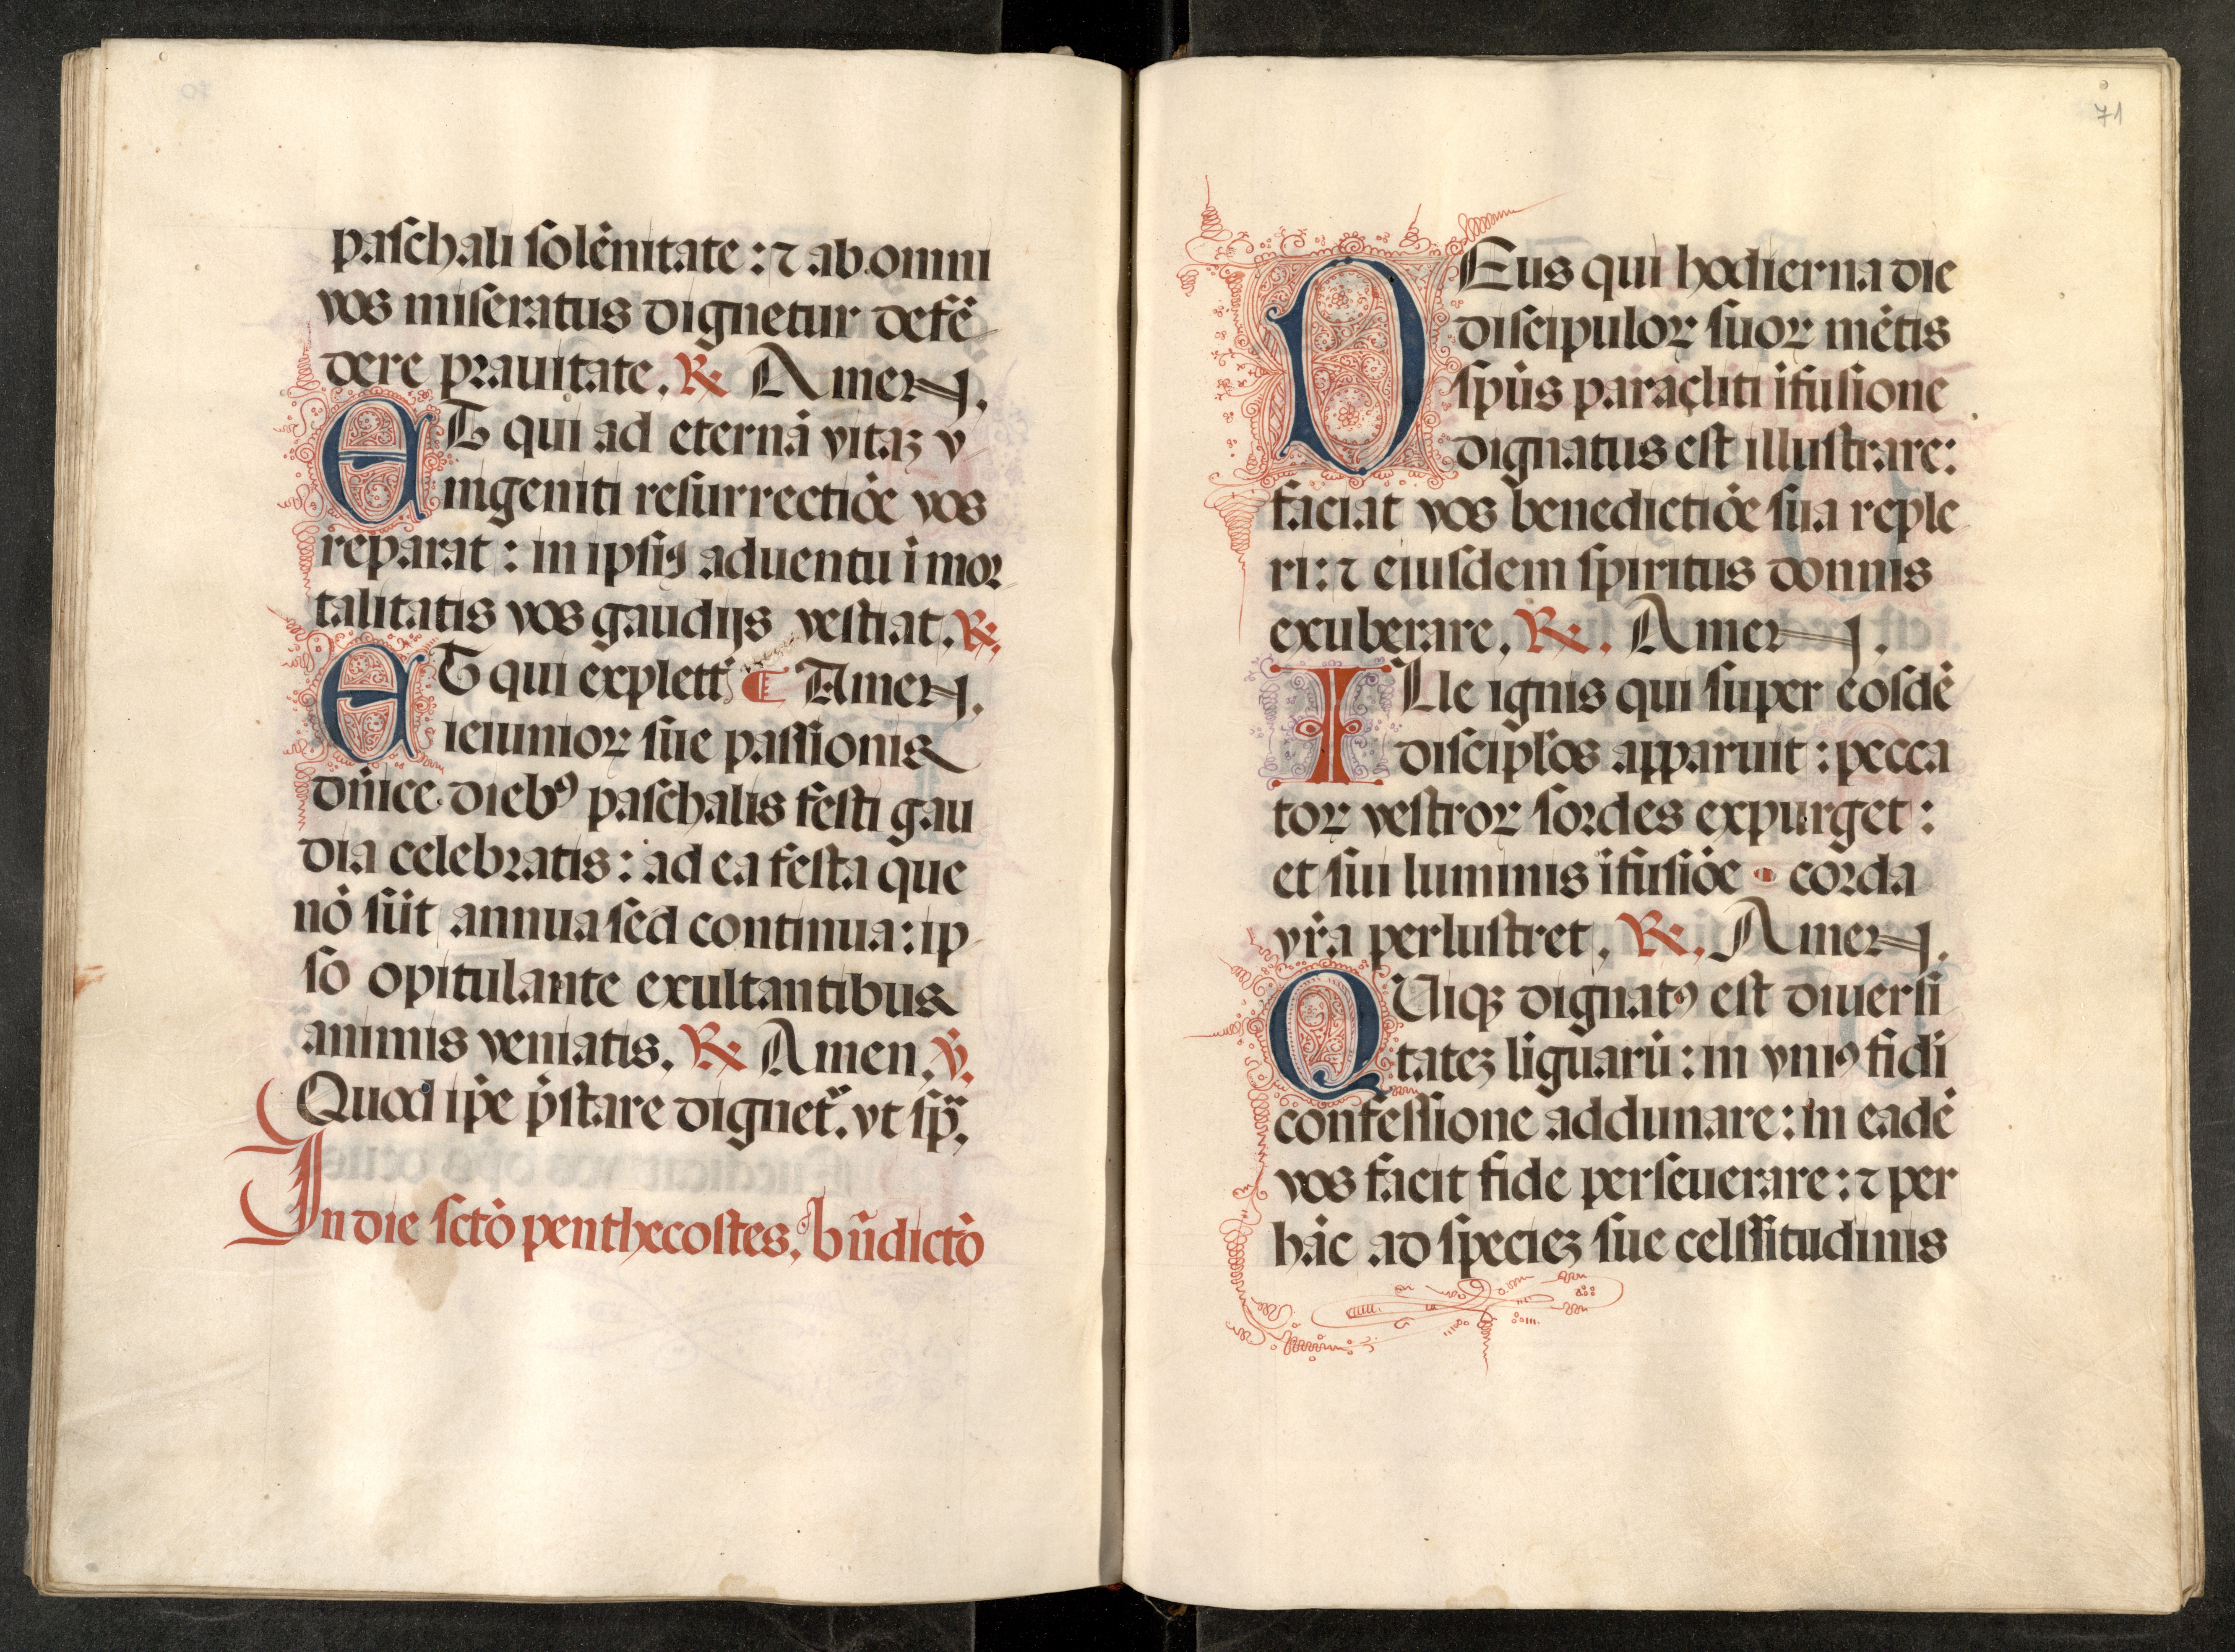 paschali solēnitate: ⁊ ab omni
vos miseratus dignetur defē
dere prauitate. ℞ Amen.
ET qui ad eternā vitaꝫ v
nigeniti resurrectiōe vos
reparat: in ipsiꝰ aduentu īmoꝛ
talitatis vos gaudijs vestiat. ℞.
ET qui explett̄ ¶ Amen.
ieiunioꝝ sue passionis
dn̄ice diebꝰ paschalis festi gau
dia celebꝛatis: ad ea festa que
nō sūt annua sed continua: ip
so opitulante exultantibus
animis veniatis. ℞ Amen. ℣.
Quod ip̄e p̄stare dignet᷑. vt sp᷑.
In die sctō penthecostes. bn̄dictō
71
DEus qui hodierna die
discipuloꝝ suoꝝ mētis
sp̄us paracliti īfusione
dignatus est illustrare:
faciat vos benedictiōe sua reple
ri: ⁊ eiusdem spiritus donnis
exuberare. ℞. Amen.
ILle ignis qui super eosdē
discipl̄os apparuit: pecca
toꝝ vestroꝝ soꝛdes expurget:
et sui luminis īfusiōe coꝛda
vr̄a perlustret. ℞. Amen.
QUiqꝫ dignatꝰ est diuersi
tateꝫ liguarū: in vniꝰ fidi
confessione addunare: in eadē
vos facit fide perseuerare: ⁊ per
hāc ad specieꝫ sue celssitudinis